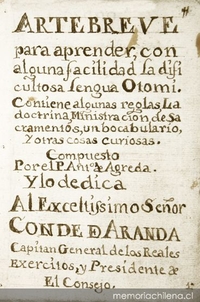 ARTE BREVE
para aprender, con
alguna facilidad la difi
cultosa lengua Otomi.
Contiene algunas reglas, La
doctrina, Ministracion de Sa
cramentos, un bocabulario,
y otras cosas curiosas.
Compuesto
Por el P. Antº. de Agreda.
Y lo dedica
Al Excellysimo Señor
CONDE D ARANDA
Capitan General de los Reales
Exercitos, y Presidente de
El Consejo.
memoriachilena.cl